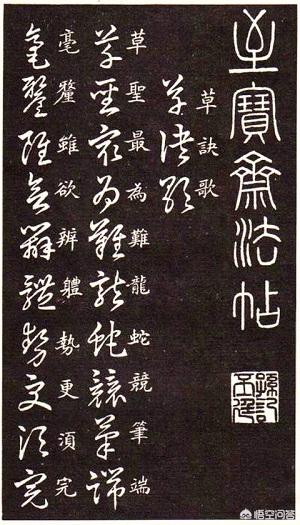 至寶齋法帖
草訣歌
草訣歌
草聖最為難龍蛇競筆端
草聖最為難龍蛇競筆端
毫釐雖欲辨體勢更須完
毫釐雖欲辨體勢更須完
悟空问答